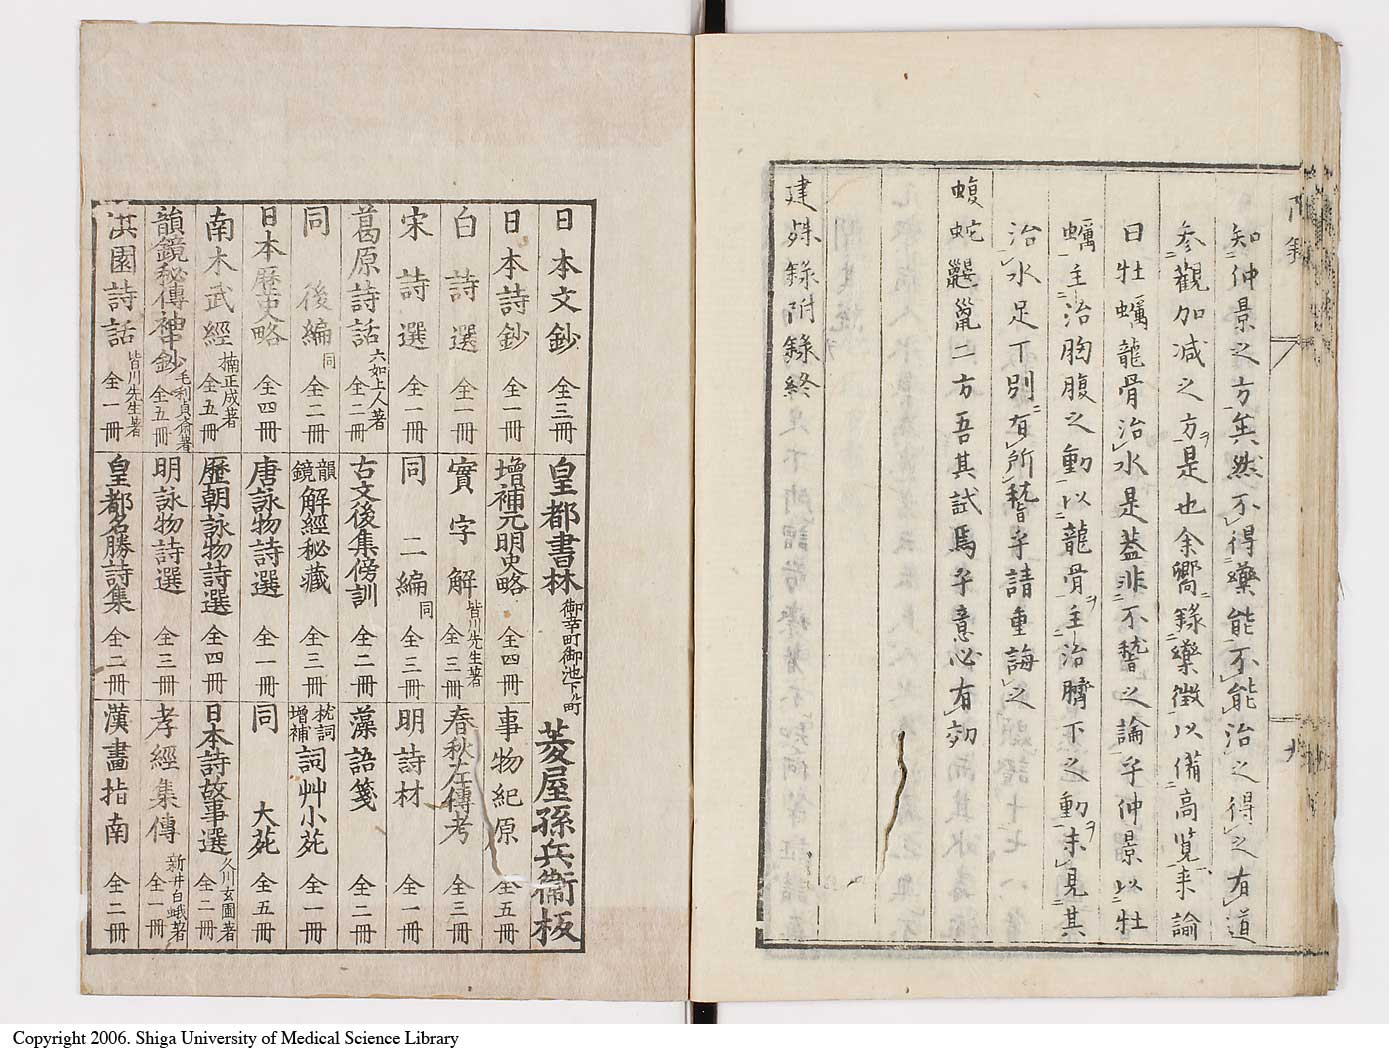 知仲景之方矣然不得藥能不能治之得之有道
参觀加减之方是也余嚮錄藥徴以備高覧来論
曰牡蠣龍骨治水是蓋非不誓之論乎仲景以牡
蠣主治胸腹之動以龍骨主治臍下之動未見其
治水足下別有所誓乎請重誨之
蝮蛇鼴鼠二方吾其試焉乎意必有効
建殊録附録終
日本文鈔 全三冊 皇都書林 御幸町御池下ル町 菱屋孫兵衞板
日本詩鈔 全一冊 增補元明史略 全四冊 事物紀原 全五冊
白詩選 全一冊 實字解 皆川先生著 全三冊 春秋左傳考 全三冊
宋詩選 全一冊 同二編 同 全三冊 明詩材 全一冊
葛原詩話 六如上人著 全二冊 古文後集傍訓 全二冊 藻語箋 全二冊
同後編 同 全二冊 韻鏡解經秘藏 全三冊 枕詞增補詞艸小苑 全一冊
日本歴史略 全四冊 唐詠物詩選 全一冊 同 大苑 全五冊
南木武經 楠正成著 全五冊 歷朝詠物詩選 全四冊 日本詩故事選 久川玄圃著 全二冊
韻鏡秘傳神中鈔 毛利貞齋著 全五冊 明詠物詩選 全三冊 孝經集傳 新井白蛾著 全一冊
淇園詩話 皆川先生著 全一冊 皇都名勝詩集 全二冊 漢畫指南 全二冊
Copyright 2006. Shiga University of Medical Science Library